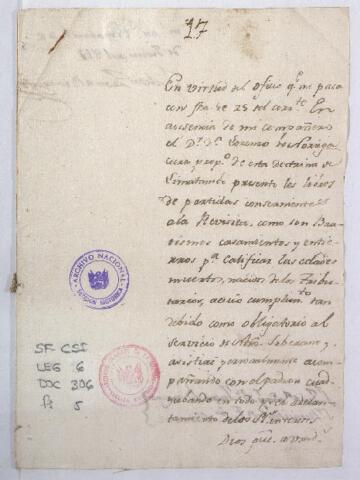 17
En virtud del oficio q.e me pasa
con fha de 25 del corr.te En
ausencia de mi compañero
el D.r D.n Lorenzo de Noriega
Cura prop.o de esta doctrina de
Limatambo presente los libros
de partidas
a la Revisita, como son Bau
tismos casamientos y entie
rros p.a calificar las edades
muertos, nacidos de los Tribu
tarios, cuio cumplim.to tan
debido como obligatorio al
servicio de Ntro Soberano y
asistiré personalmente acom
pañando con el padron cuad
rabando en todo p.r el adelan
tamiento de los R.s intereses
Dios gue.
ARCHIVO NACIONAL
SECCION HISTORICA
SF CSI
LEG 6
DOC 306
f: 5